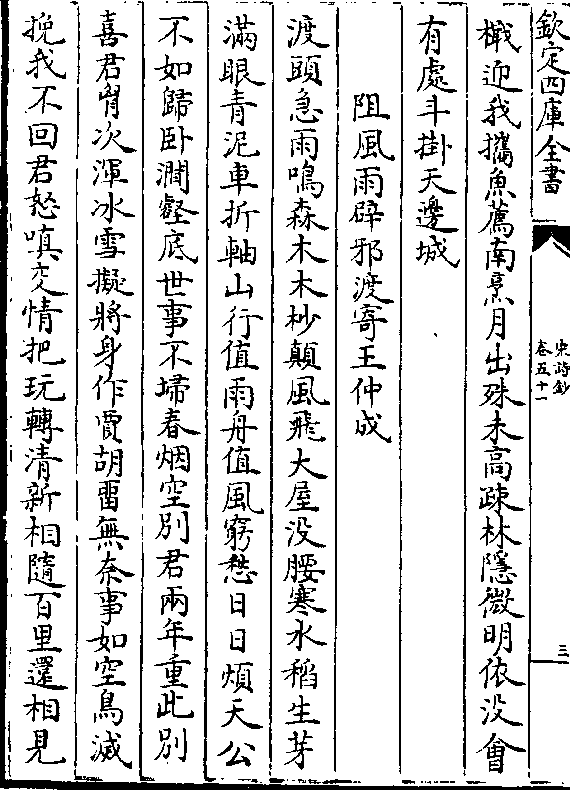 欽定四庫全書
宋詩鈔
卷五十一
三
檝迎我攜魚薦南烹月出殊未高疎林隱微明依没會
有處斗掛天邊城
阻風雨辟邪渡寄王仲成
渡頭急雨鳴森木木杪顛風飛大屋没腰寒水稻生芽
滿眼青泥車折軸山行值雨舟值風窮愁日日煩天公
不如歸卧澗壑底世事不埽春烟空别君兩年重此别
喜君胷次渾冰雪擬將身作賈胡畱無奈事如空鳥滅
挽我不回君怒嗔交情把玩轉清新相隨百里還相見